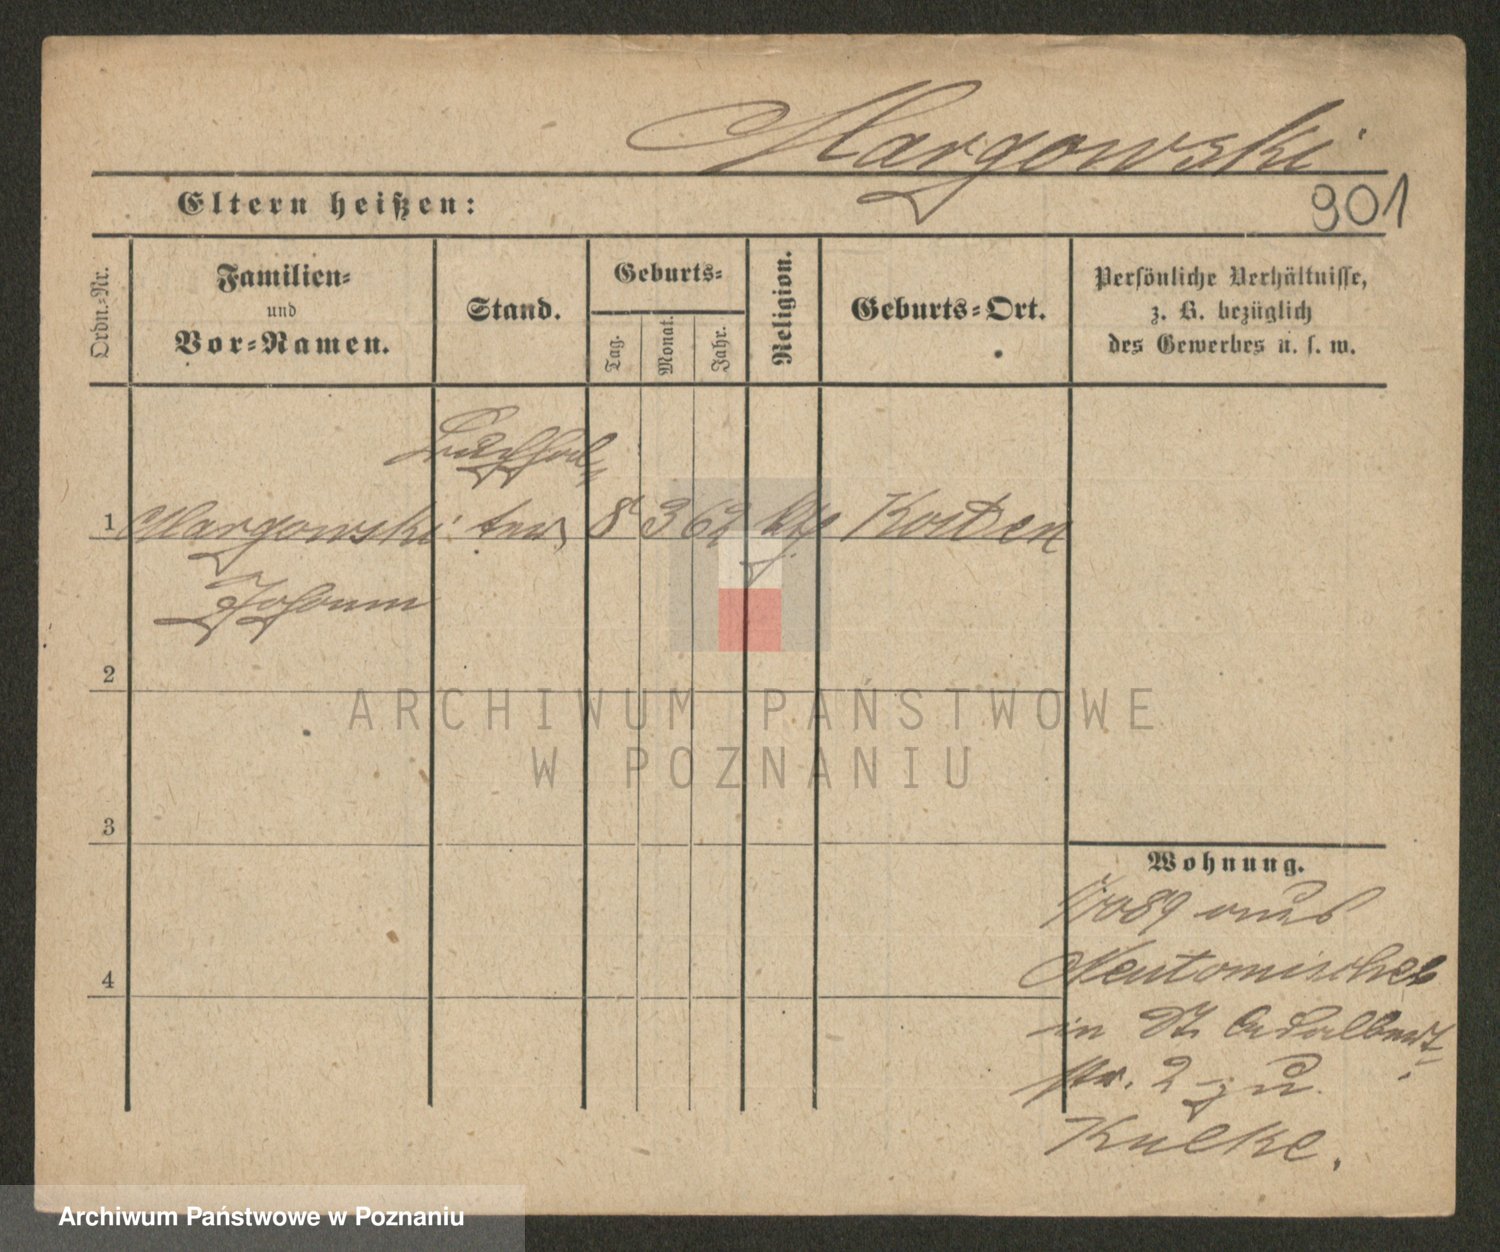 Margowski
Eltern heißen:
901
Ordn.-Nr.
Familien-
und
Vor-Namen.
Stand.
Geburts-
Tag.
Monat.
Jahr.
Religion.
Geburts-Ort.
Persönliche Verhältnisse,
z. B. bezüglich
des Gewerbes u. s. w.
Buchhal-
1 Margowski ter 8 3 62 kth Kosten
Johann
2
3
4
Wohnung.
89 aus
Neutomischel
in St. Adalbert-
str. 2 zu
ARCHIWUM PAŃSTWOWE
W POZNANIU
Archiwum Państwowe w Poznaniu